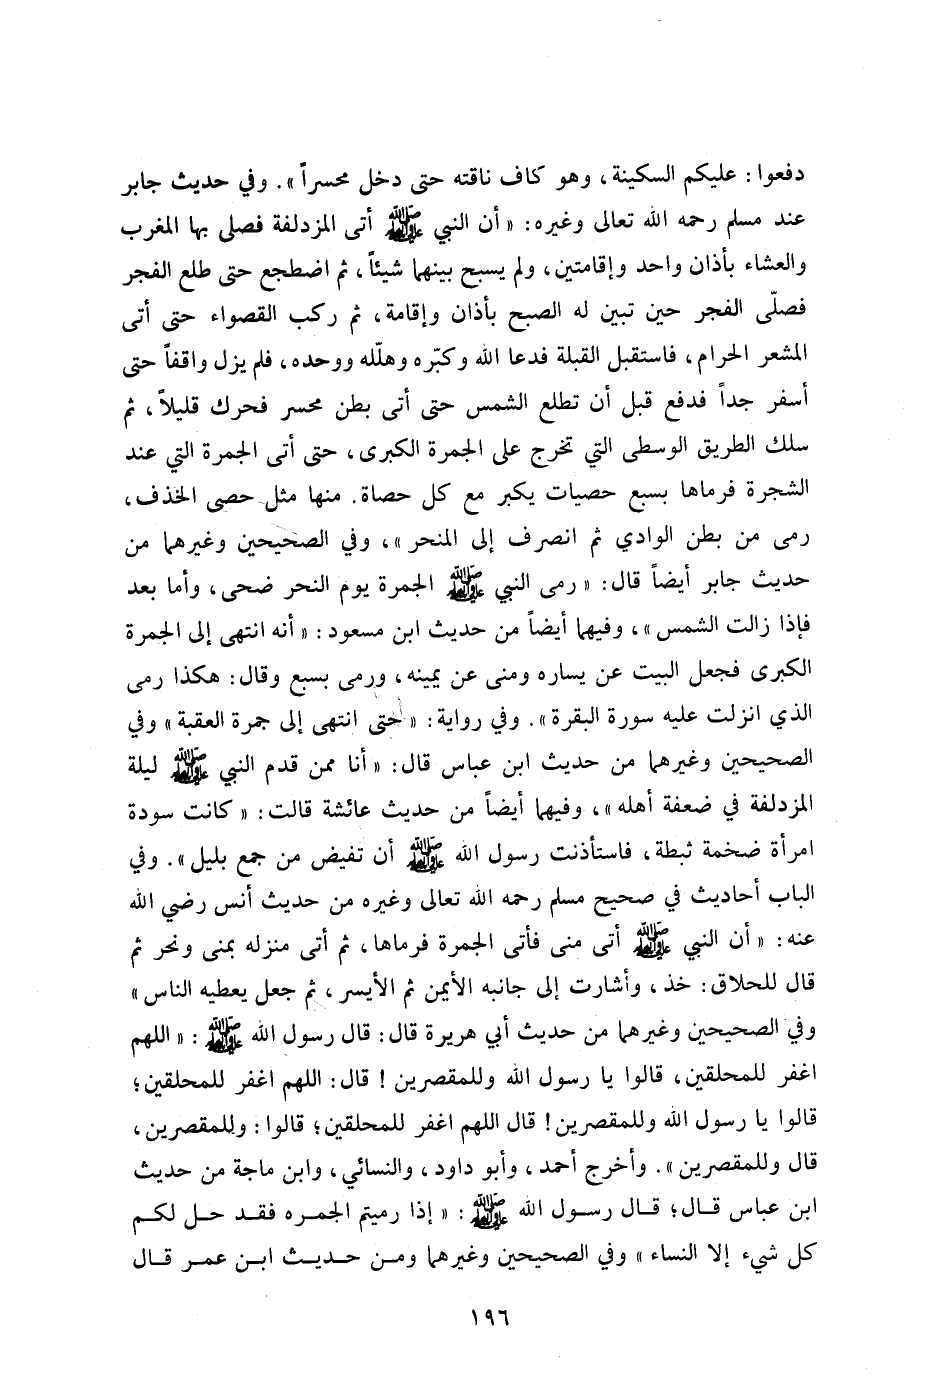 دفعوا : عليكم السكينة ، وهو كاف ناقته حتى دخل محسراً » . وفي حديث جابر
عند مسلم رحمه الله تعالى وغيره : « أن النبي ﷺ أتى المزدلفة فصلى بها المغرب
والعشاء بأذان واحد وإقامتين ، ولم يسبح بينهما شيئاً ، ثم اضطجع حتى طلع الفجر
فصلّى الفجر حين تبين له الصبح بأذان وإقامة ، ثم ركب القصواء حتى أتى
المشعر الحرام ، فاستقبل القبلة فدعا الله وكبّره وهلّله ووحده ، فلم يزل واقفاً حتى
أسفر جداً فدفع قبل أن تطلع الشمس حتى أتى بطن محسر فحرك قليلاً ، ثم
سلك الطريق الوسطى التي تخرج على الجمرة الكبرى ، حتى أتى الجمرة التي عند
الشجرة فرماها بسبع حصيات يكبر مع كل حصاة . منها مثل حصى الخذف ،
رمى من بطن الوادي ثم انصرف إلى المنحر » ، وفي الصحيحين وغيرهما من
حديث جابر أيضاً قال : « رمى النبي ﷺ الجمرة يوم النحر ضحى ، وأما بعد
فإذا زالت الشمس » ، وفيهما أيضاً من حديث ابن مسعود : « أنه انتهى إلى الجمرة
الكبرى فجعل البيت عن يساره ومنى عن يمينه ، ورمى بسبع وقال : هكذا رمى
الذي انزلت عليه سورة البقرة » . وفي رواية : « حتى انتهى إلى جمرة العقبة » وفي
الصحيحين وغيرهما من حديث ابن عباس قال : « أنا ممن قدم النبي ﷺ ليلة
المزدلفة في ضعفة أهله » ، وفيهما أيضاً من حديث عائشة قالت : « كانت سودة
امرأة ضخمة ثبطة ، فاستأذنت رسول الله ﷺ أن تفيض من جمع بليل » . وفي
الباب أحاديث في صحيح مسلم رحمه الله تعالى وغيره من حديث أنس رضي الله
عنه : « أن النبي ﷺ أتى منى فأتى الجمرة فرماها ، ثم أتى منزله بمنى ونحر ثم
قال للحلاق : خذ ، وأشارت إلى جانبه الأيمن ثم الأيسر ، ثم جعل يعطيه الناس »
وفي الصحيحين وغيرهما من حديث أبي هريرة قال : قال رسول الله ﷺ : « اللهم
اغفر للمحلقين ، قالوا يا رسول الله وللمقصرين ! قال : اللهم اغفر للمحلقين ؛
قالوا يا رسول الله وللمقصرين ! قال اللهم اغفر للمحلقين ؛ قالوا : وللمقصرين ،
قال وللمقصرين » . وأخرج أحمد ، وأبو داود ، والنسائي ، وابن ماجة من حديث
ابن عباس قال ؛ قال رسول الله ﷺ : « إذا رميتم الجمره فقد حل لكم
كل شيء إلا النساء » وفي الصحيحين وغيرهما ومن حديث ابن عمر قال
١٩٦